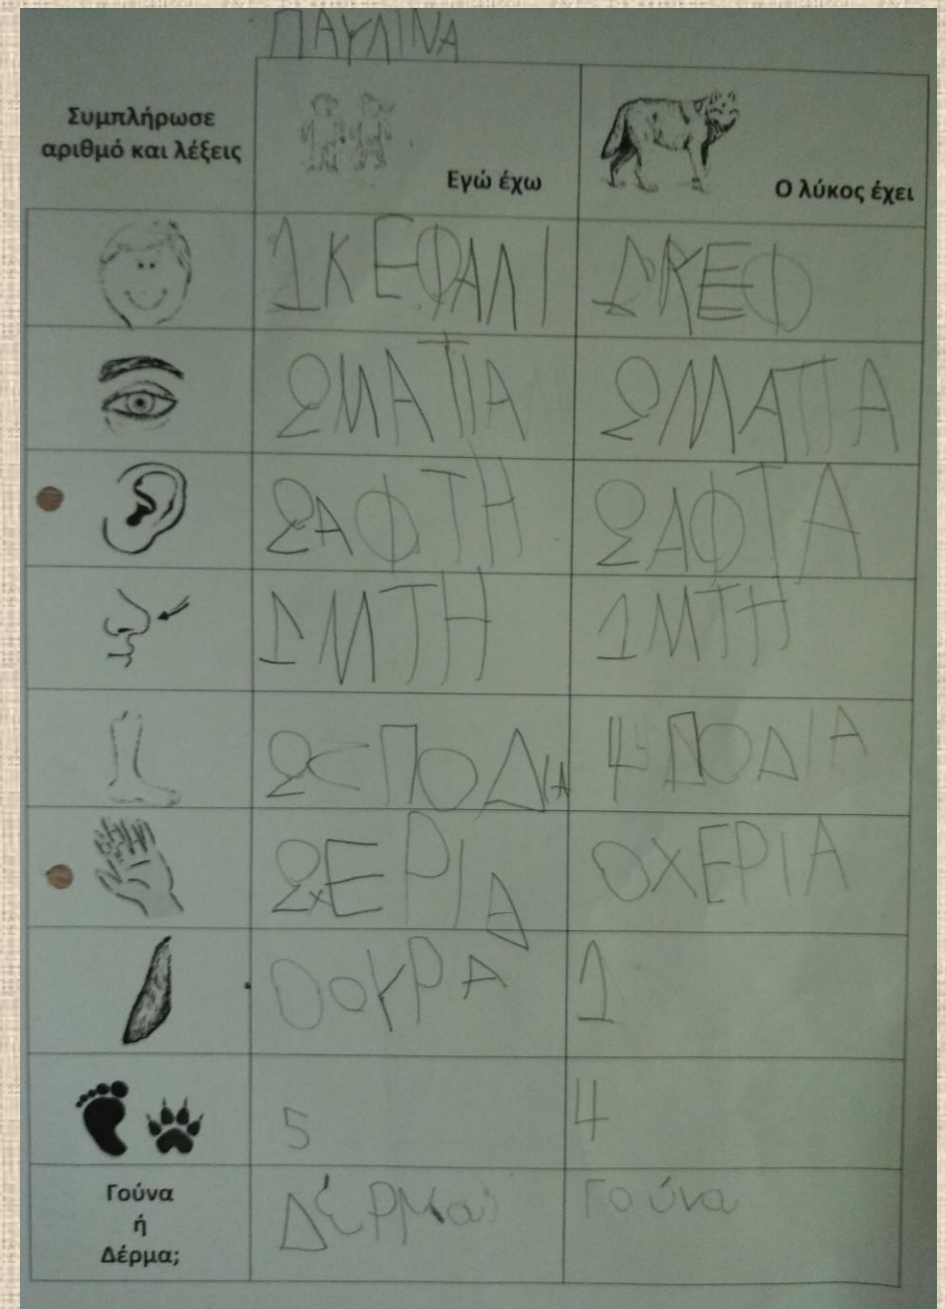 ΠΑΥΛΙΝΑ
Συμπλήρωσε
αριθμό και λέξεις
Εγώ έχω
Ο λύκος έχει
1ΚΕΦΑΛΙ
1ΚΕΦ
2ΜΑΤΙΑ
2ΜΑΤΙΑ
2ΑΦΤΗ
2ΑΦΤΑ
1ΜΤΗ
1ΜΤΗ
2 ΠΟΔΙΑ
4 ΠΟΔΙΑ
2ΧΕΡΙΑ
0ΧΕΡΙΑ
0ΟΥΡΑ
1
5
4
Γούνα
ή
Δέρμα;
ΔέΡΜα
Γούνα